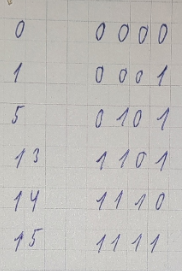 0 0 0 0 0
1 0 0 0 1
5 0 1 0 1
13 1 1 0 1
14 1 1 1 0
15 1 1 1 1